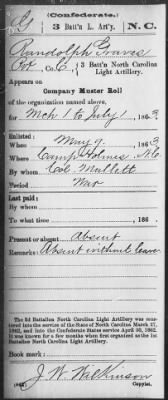 (Confederate.)
G 3 Batt'n L. Art'y. N.C.
Randolph Graves
Pvt, Co. C, 3 Batt'n North Carolina
Light Artillery.
Appears on
Company Muster Roll
of the organization named above,
for Mch 1 to July 1, 1863
Enlisted:
When May 9, 1863
Where Camp Holmes N.C.
By whom Col. Mallett
Period War
Last paid:
By whom
To what time , 186 .
Present or absent Absent
Remarks: Absent without leave
The 3d Battalion North Carolina Light Artillery was mustered
into the service of the State of North Carolina March
1862, and into the Confederate States service April 30, 1862.
It was known for a few months when first organized as the 1st
Battalion North Carolina Light Artillery.
Book mark:
J. W. Wilkinson
(642) Copyist.